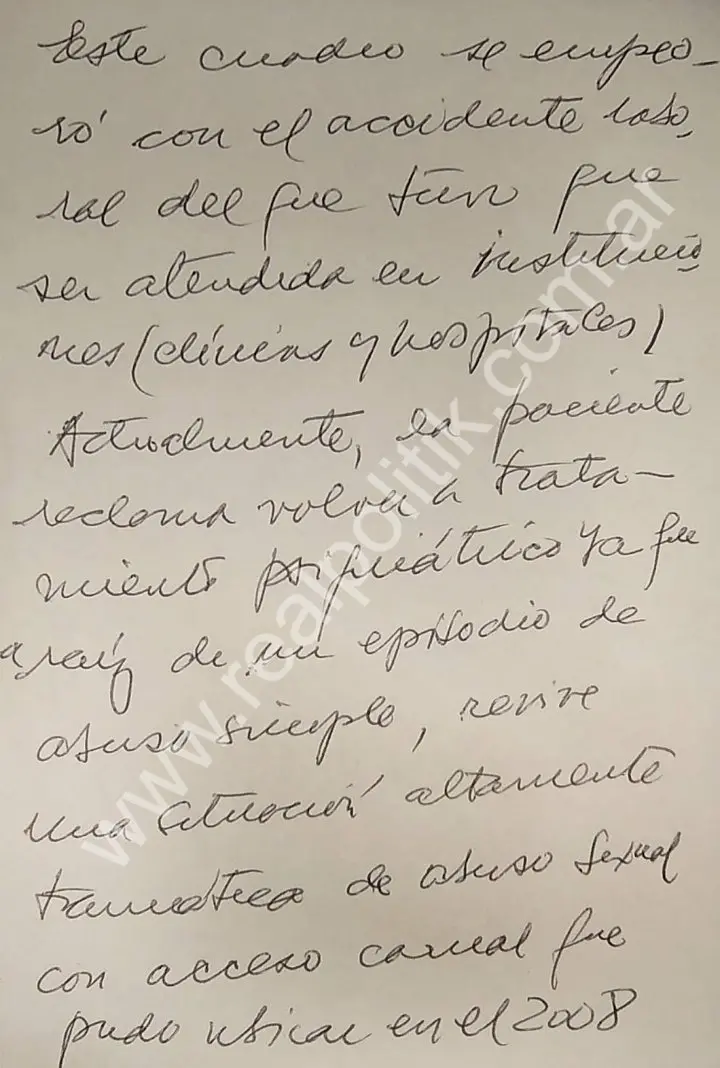 Este cuadro se empeo-
ró con el accidente labo-
ral del que tuvo que
ser atendida en institucio-
nes (clínicas y hospitales)
Actualmente, la paciente
reclama volver a trata-
miento psiquiátrico ya que
a raíz de un episodio de
abuso simple, revive
una situación altamente
traumática de abuso sexual
con acceso carnal que
pudo ubicar en el 2008
www.realpolitik.com.ar